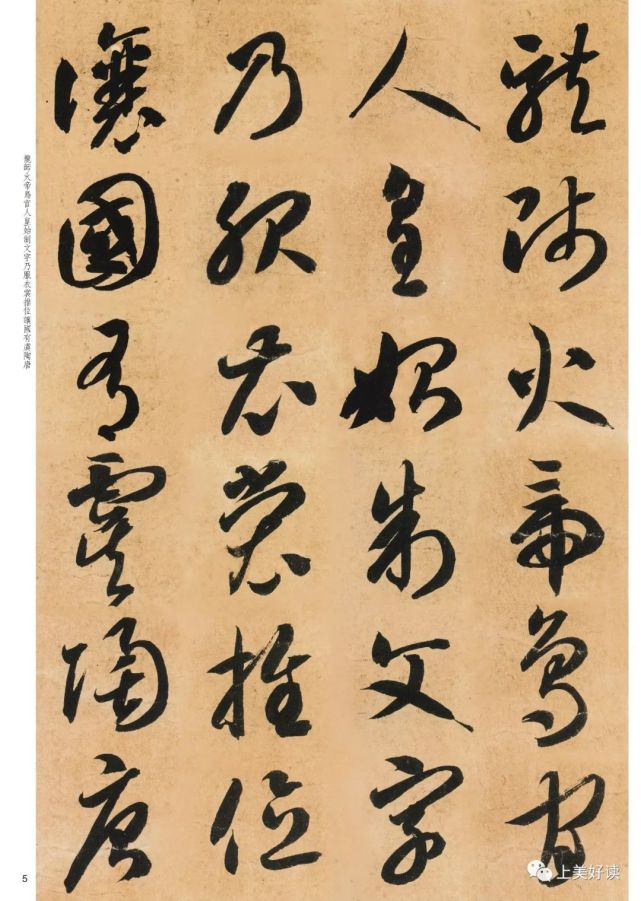 龍師火帝鳥官
人皇始制文字
乃服衣裳推位
讓國有虞陶唐
龍師火帝鳥官人皇始制文字乃服衣裳推位讓國有虞陶唐
5
上美好读